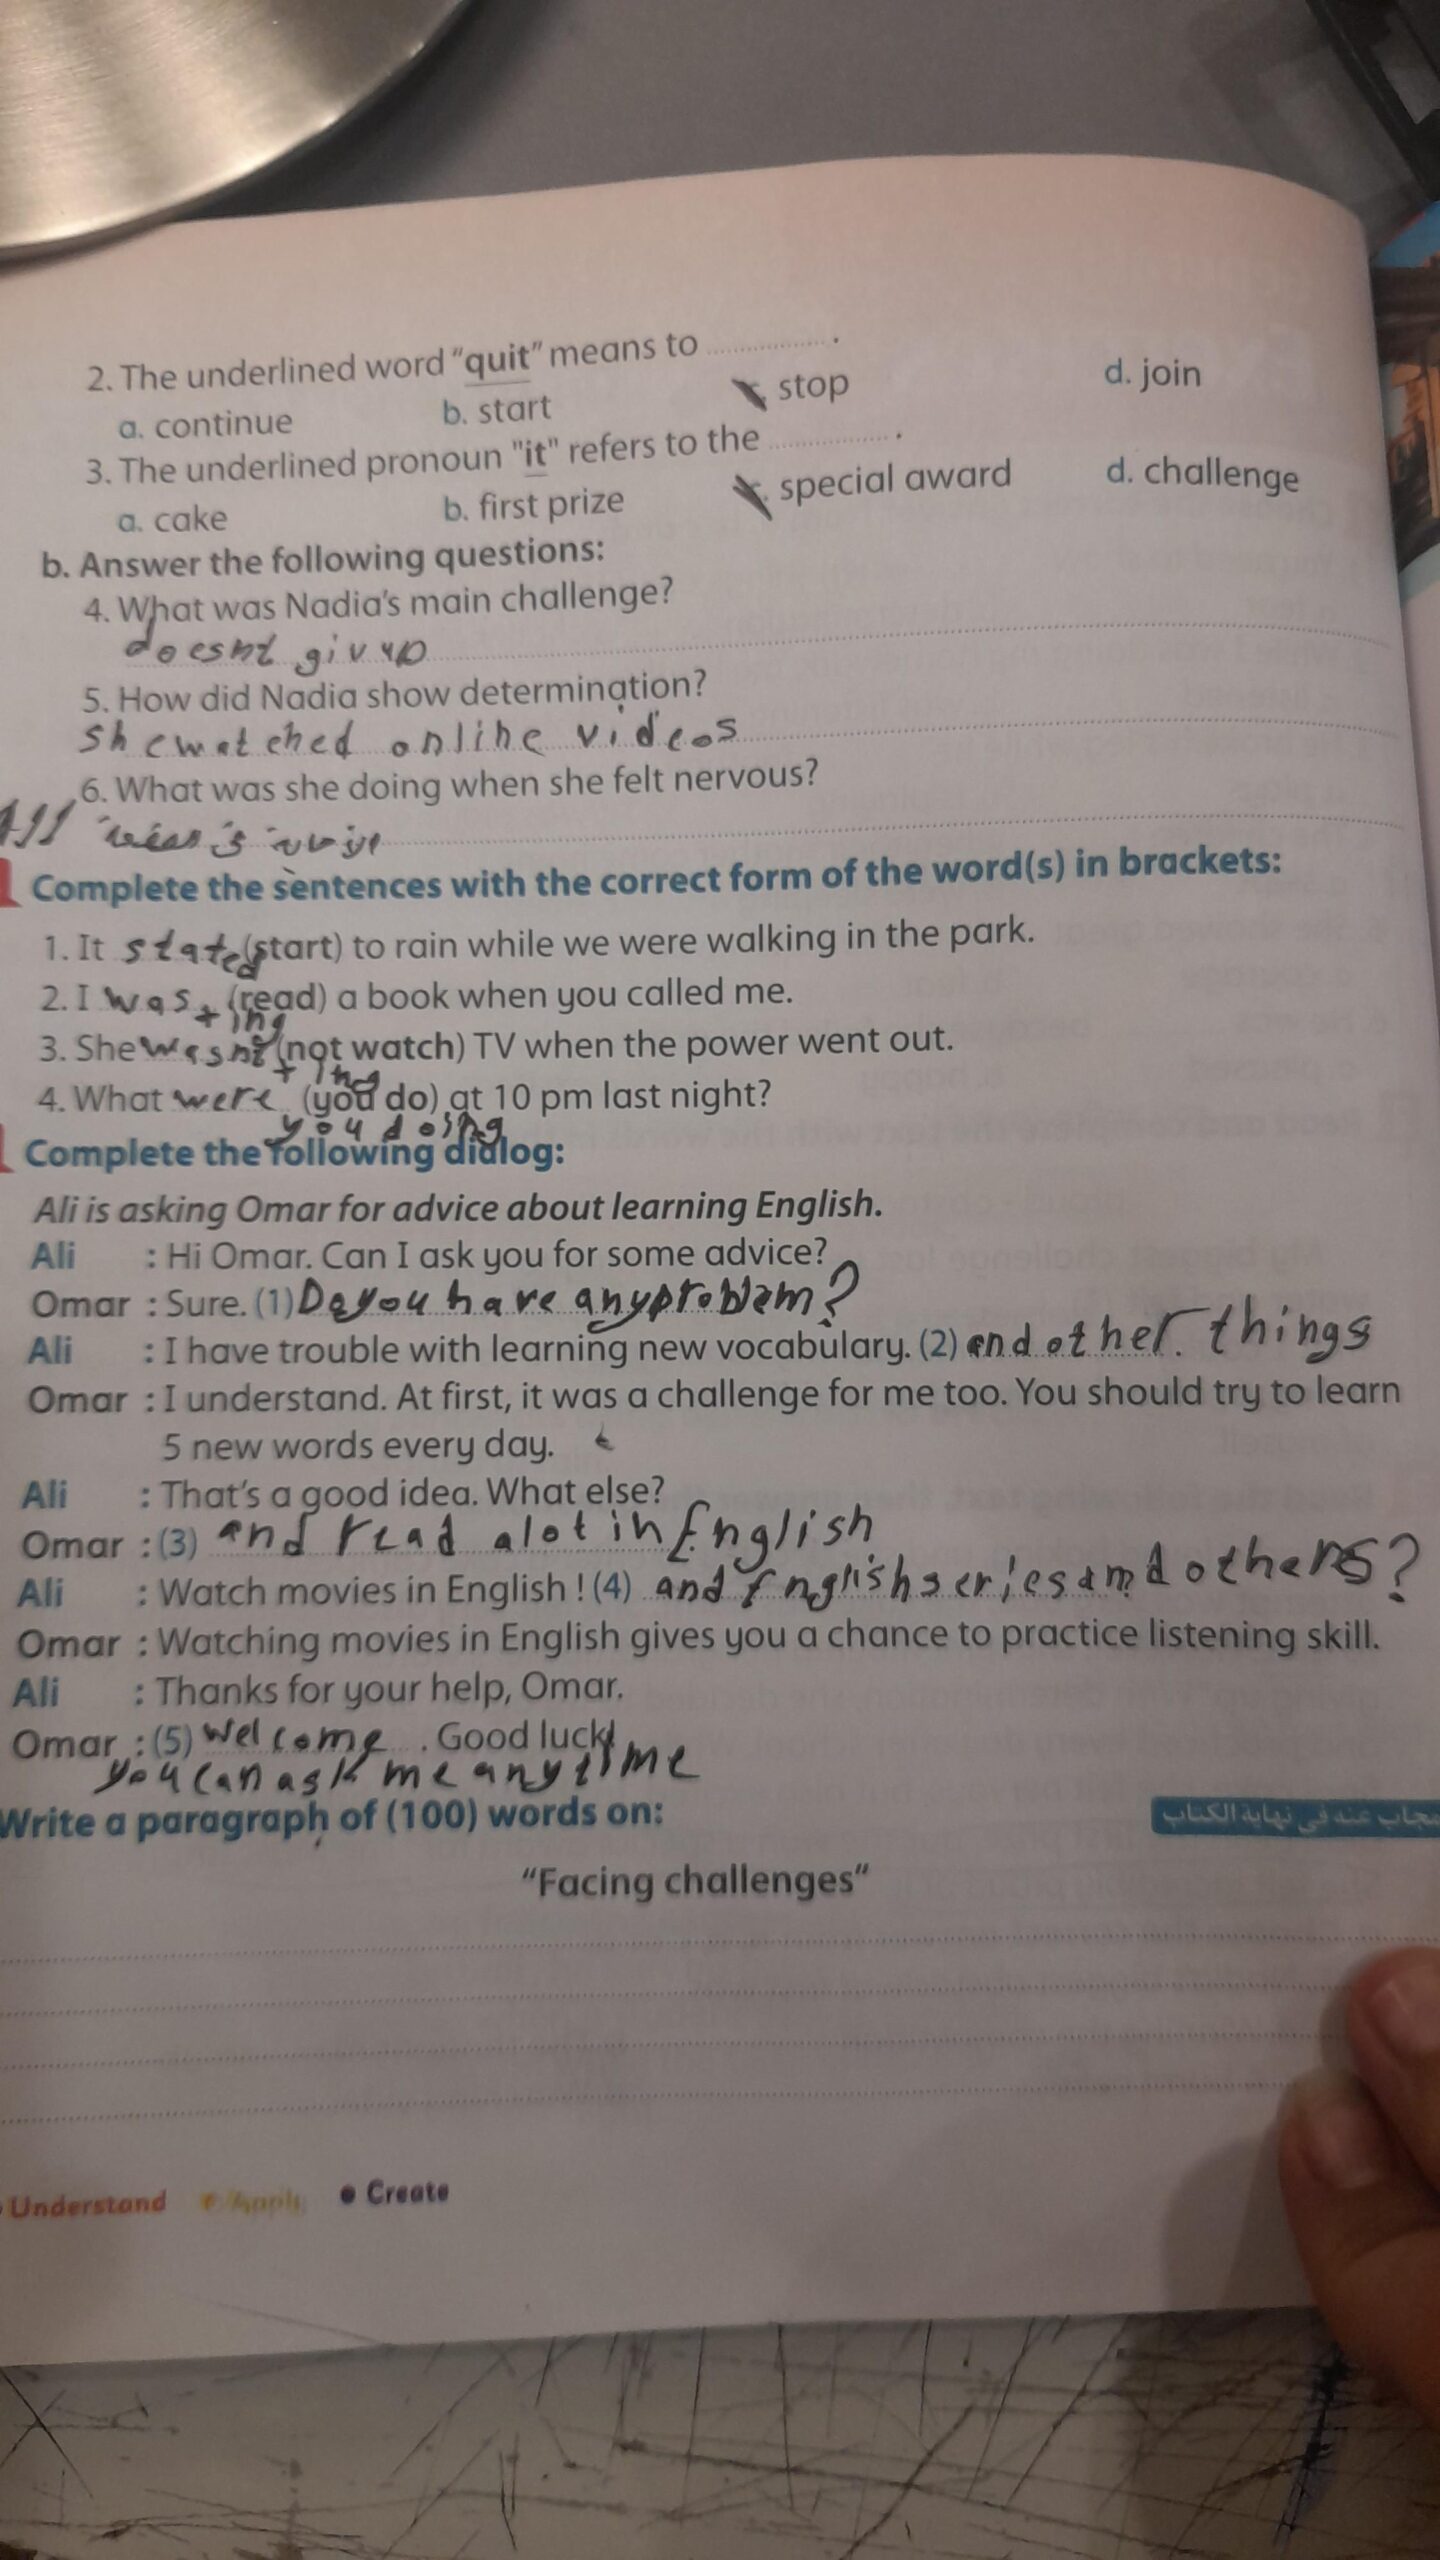 2. The underlined word "quit" means to ................ .
a. continue b. start stop d. join
3. The underlined pronoun "it" refers to the ................ .
a. cake b. first prize special award d. challenge
b. Answer the following questions:
4. What was Nadia's main challenge?
doesnt giv up
5. How did Nadia show determination?
she watched online videos
6. What was she doing when she felt nervous?
All
Complete the sentences with the correct form of the word(s) in brackets:
1. It stated (start) to rain while we were walking in the park.
2. I was + ing (read) a book when you called me.
3. She wasnt + ing (not watch) TV when the power went out.
4. What were (you do) at 10 pm last night?
you doing
Complete the following dialog:
Ali is asking Omar for advice about learning English.
Ali : Hi Omar. Can I ask you for some advice?
Omar : Sure. (1) Do you have any problem?
Ali : I have trouble with learning new vocabulary. (2) and other things
Omar : I understand. At first, it was a challenge for me too. You should try to learn
5 new words every day.
Ali : That's a good idea. What else?
Omar : (3) and read alot in English
Ali : Watch movies in English ! (4) and English series and others?
Omar : Watching movies in English gives you a chance to practice listening skill.
Ali : Thanks for your help, Omar.
Omar : (5) welcome . Good luck!
you can ask me any time
Write a paragraph of (100) words on:
مجاب عنه في نهاية الكتاب
"Facing challenges"
Understand Apply Create